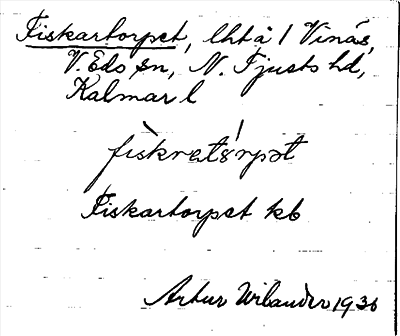 Fiskartorpet, lht å 1 Vinäs,
V. Eds sn, N. Tjusts hd,
Kalmar l
fiskratårpət
Fiskartorpet kb
Artur Wilander 1936